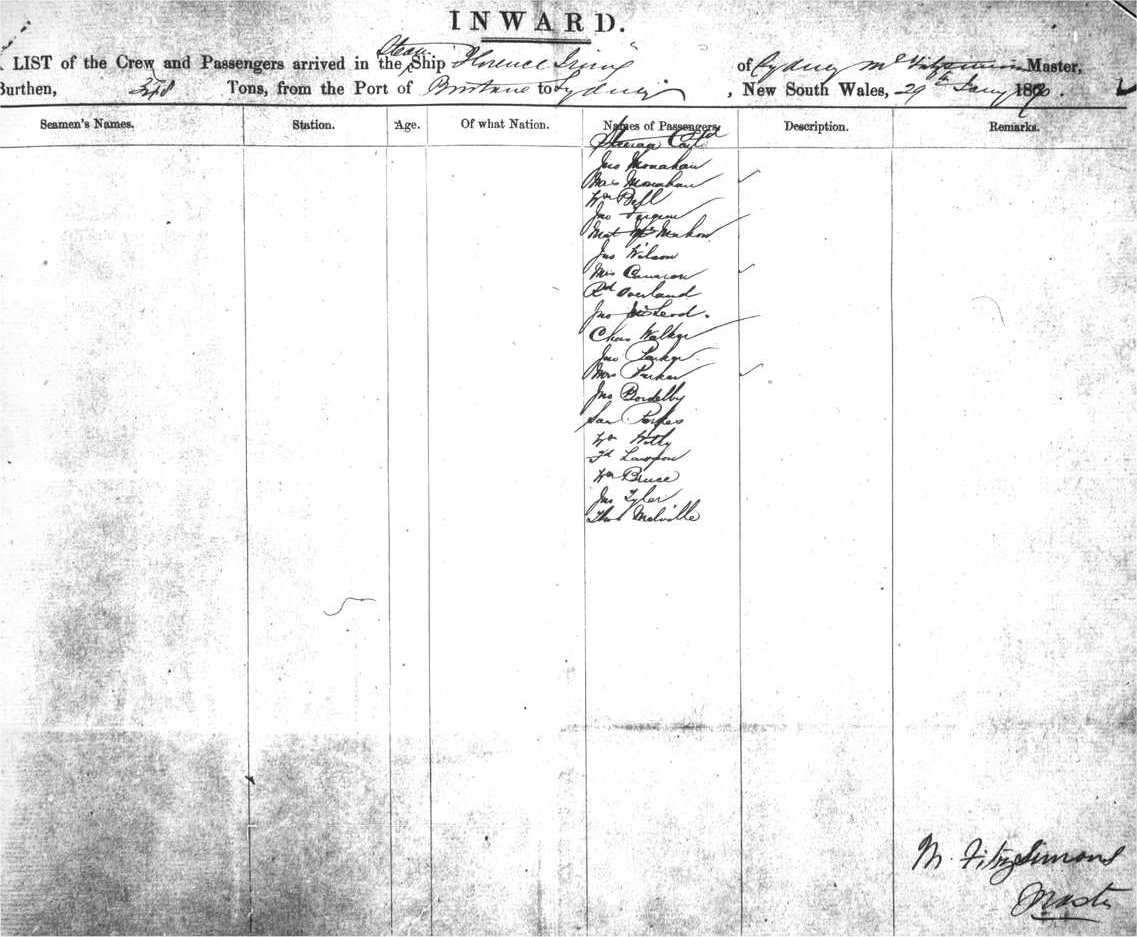 INWARD.
LIST of the Crew and Passengers arrived in the Steam Ship Florence Irving of Sydney Mc Fitzsimons Master,
Burthen, Tons, from the Port of Brisbane to Sydney, New South Wales, 29th Jany 1870.
Seamen's Names. Station. Age. Of what Nation. Names of Passengers. Description. Remarks.
Steerage
Jno Monahan
Mrs Monahan
Wm Bell
Jno
Mat Mc Mahon
Jno Wilson
Mrs Cameron
Rd Overland
Jno McLeod.
Chas Walker
Jno Parker
Mrs Parker
Jno Bordelby
Forbes
Wm
Lawson
Wm Bruce
Jno Tyler
Thos Melville
M. FitzSimons
Master